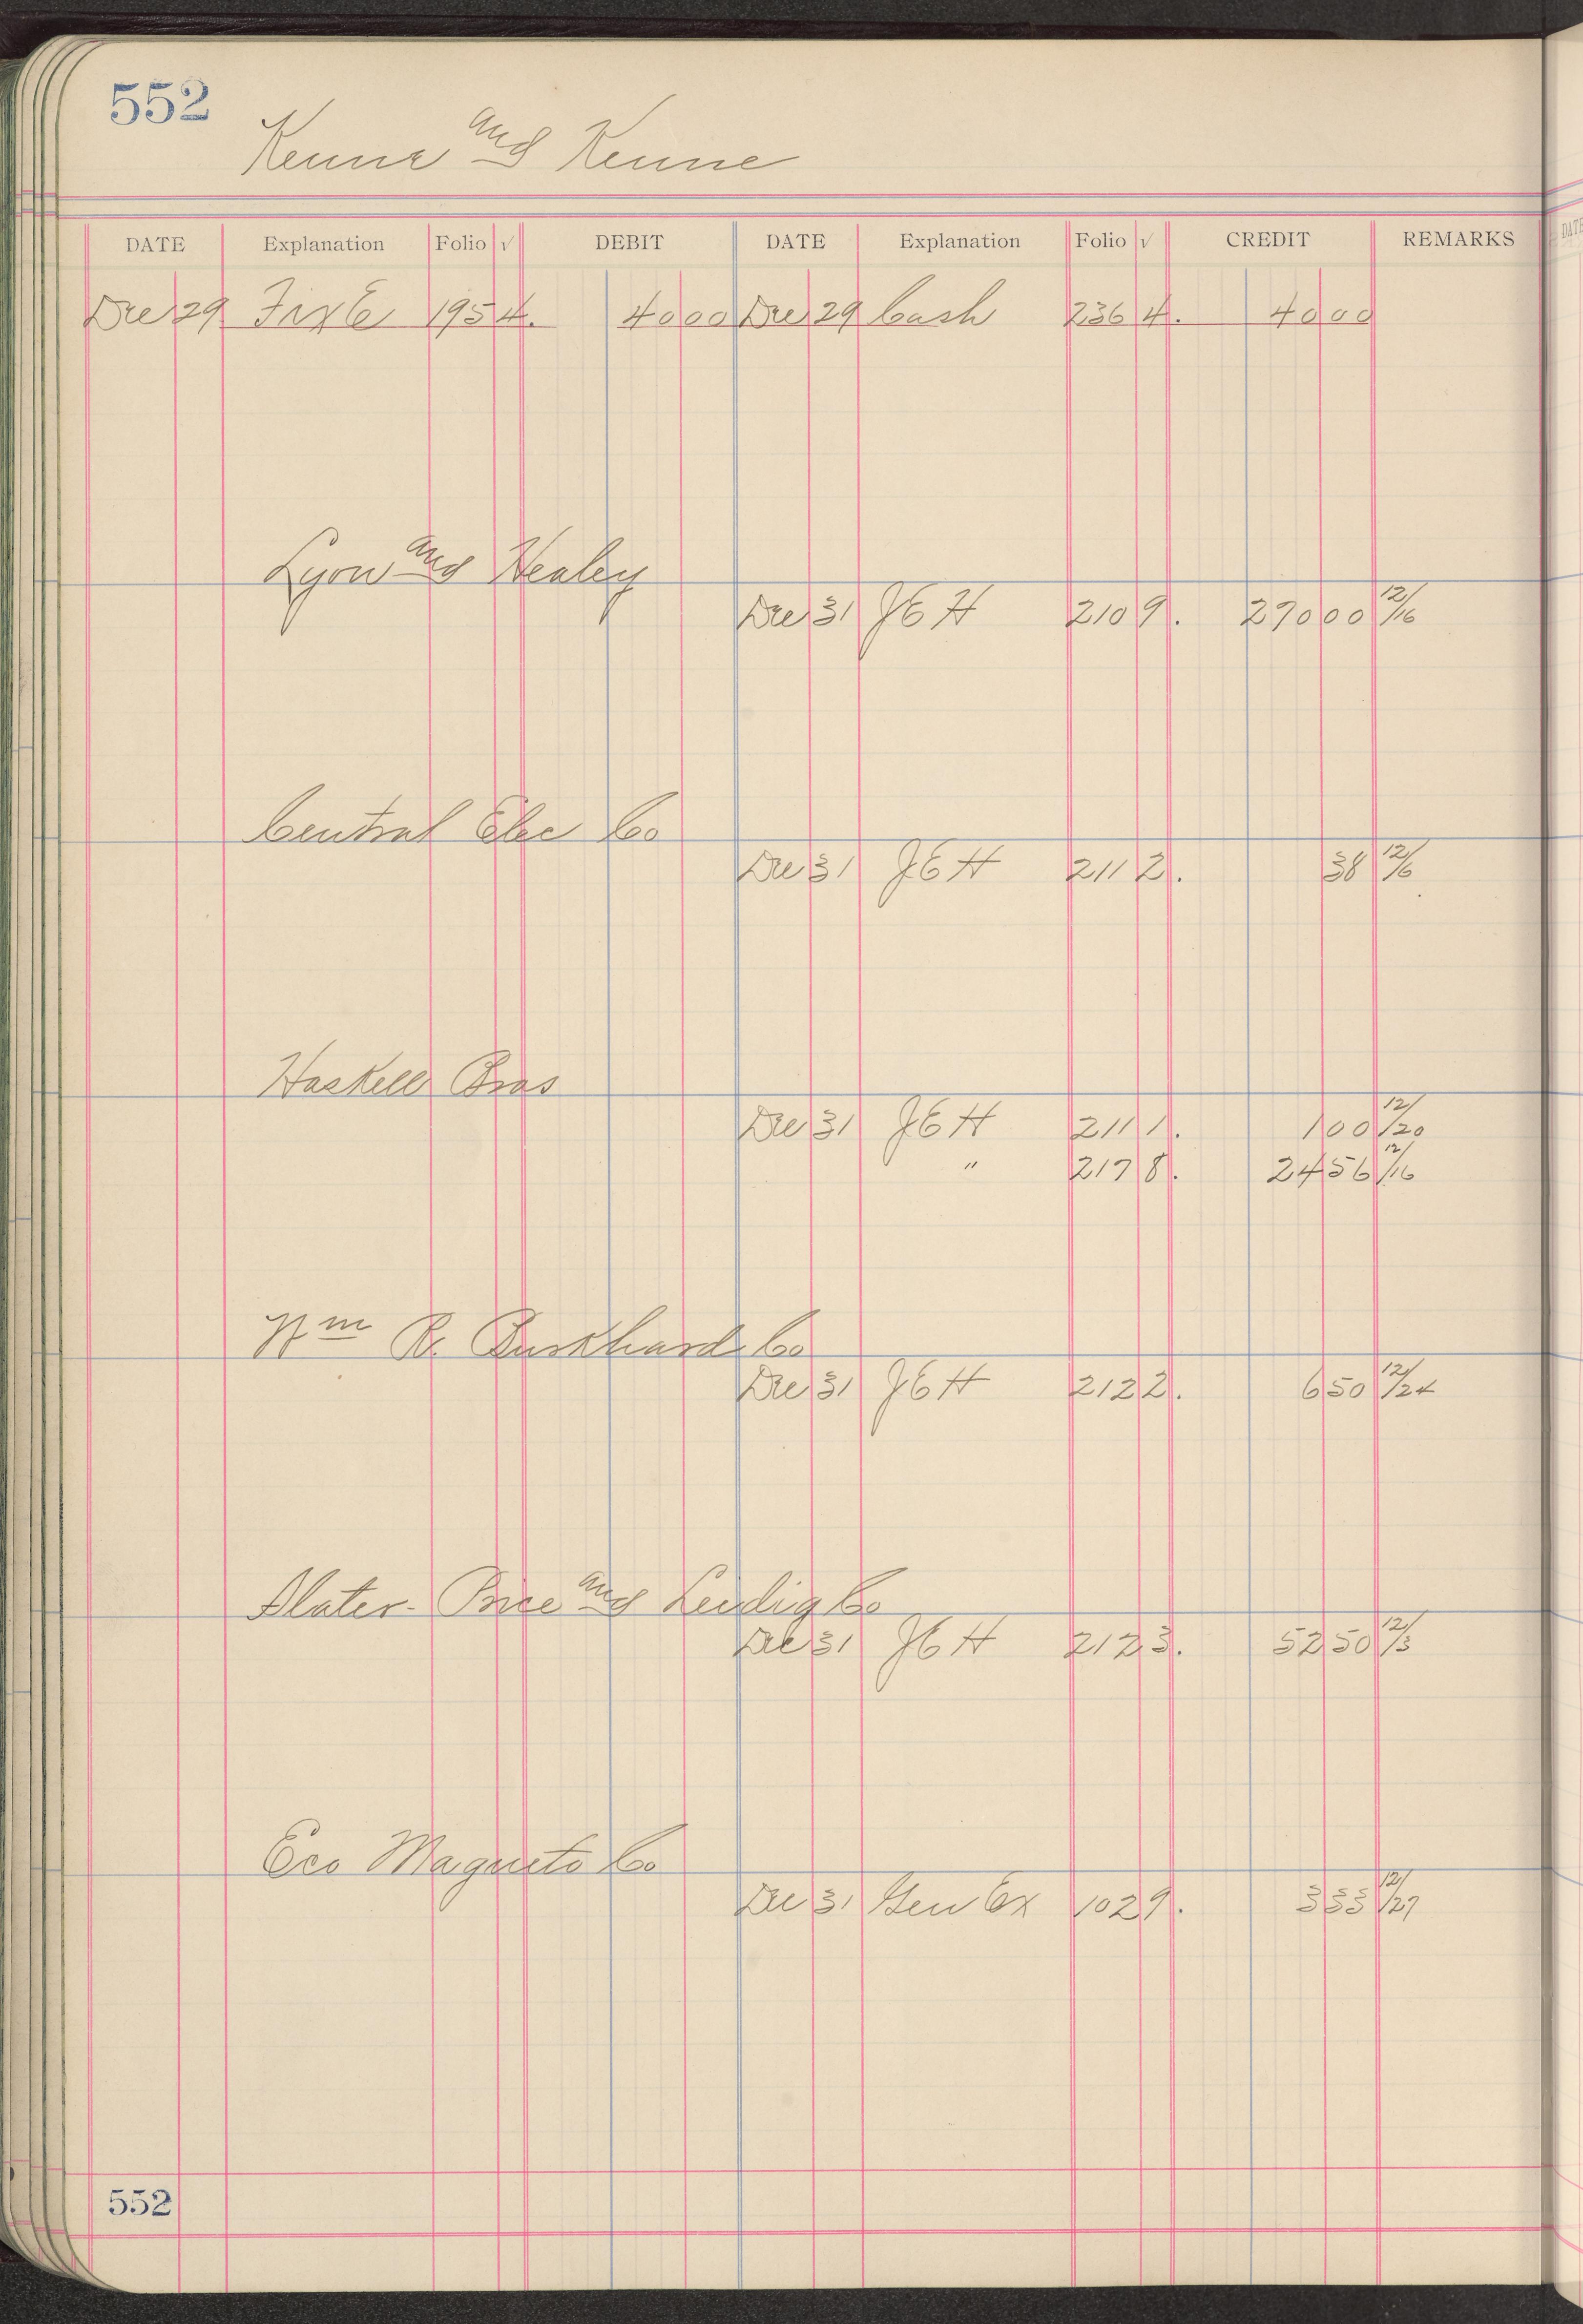 552
Kenne and Kenne
DATE Explanation Folio √ DEBIT DATE Explanation Folio √ CREDIT REMARKS
Dec 29 Fix E 1954. 4000 Dec 29 Cash 2364. 4000
Lyon and Healey
Dec 31 JEH 2109. 27000 12/16
Central Elec Co
Dec 31 JEH 2112. 38 12/6
Haskell Bros
Dec 31 JEH 2111. 100 12/20
" 2178. 2456 12/16
Wm R. Burkhard Co
Dec 31 JEH 2122. 650 12/24
Slater Price and Leidig Co
Dec 31 JEH 2123. 5250 12/3
Eco Magneto Co
Dec 31 Gen Ex 1029. 333 12/27
552